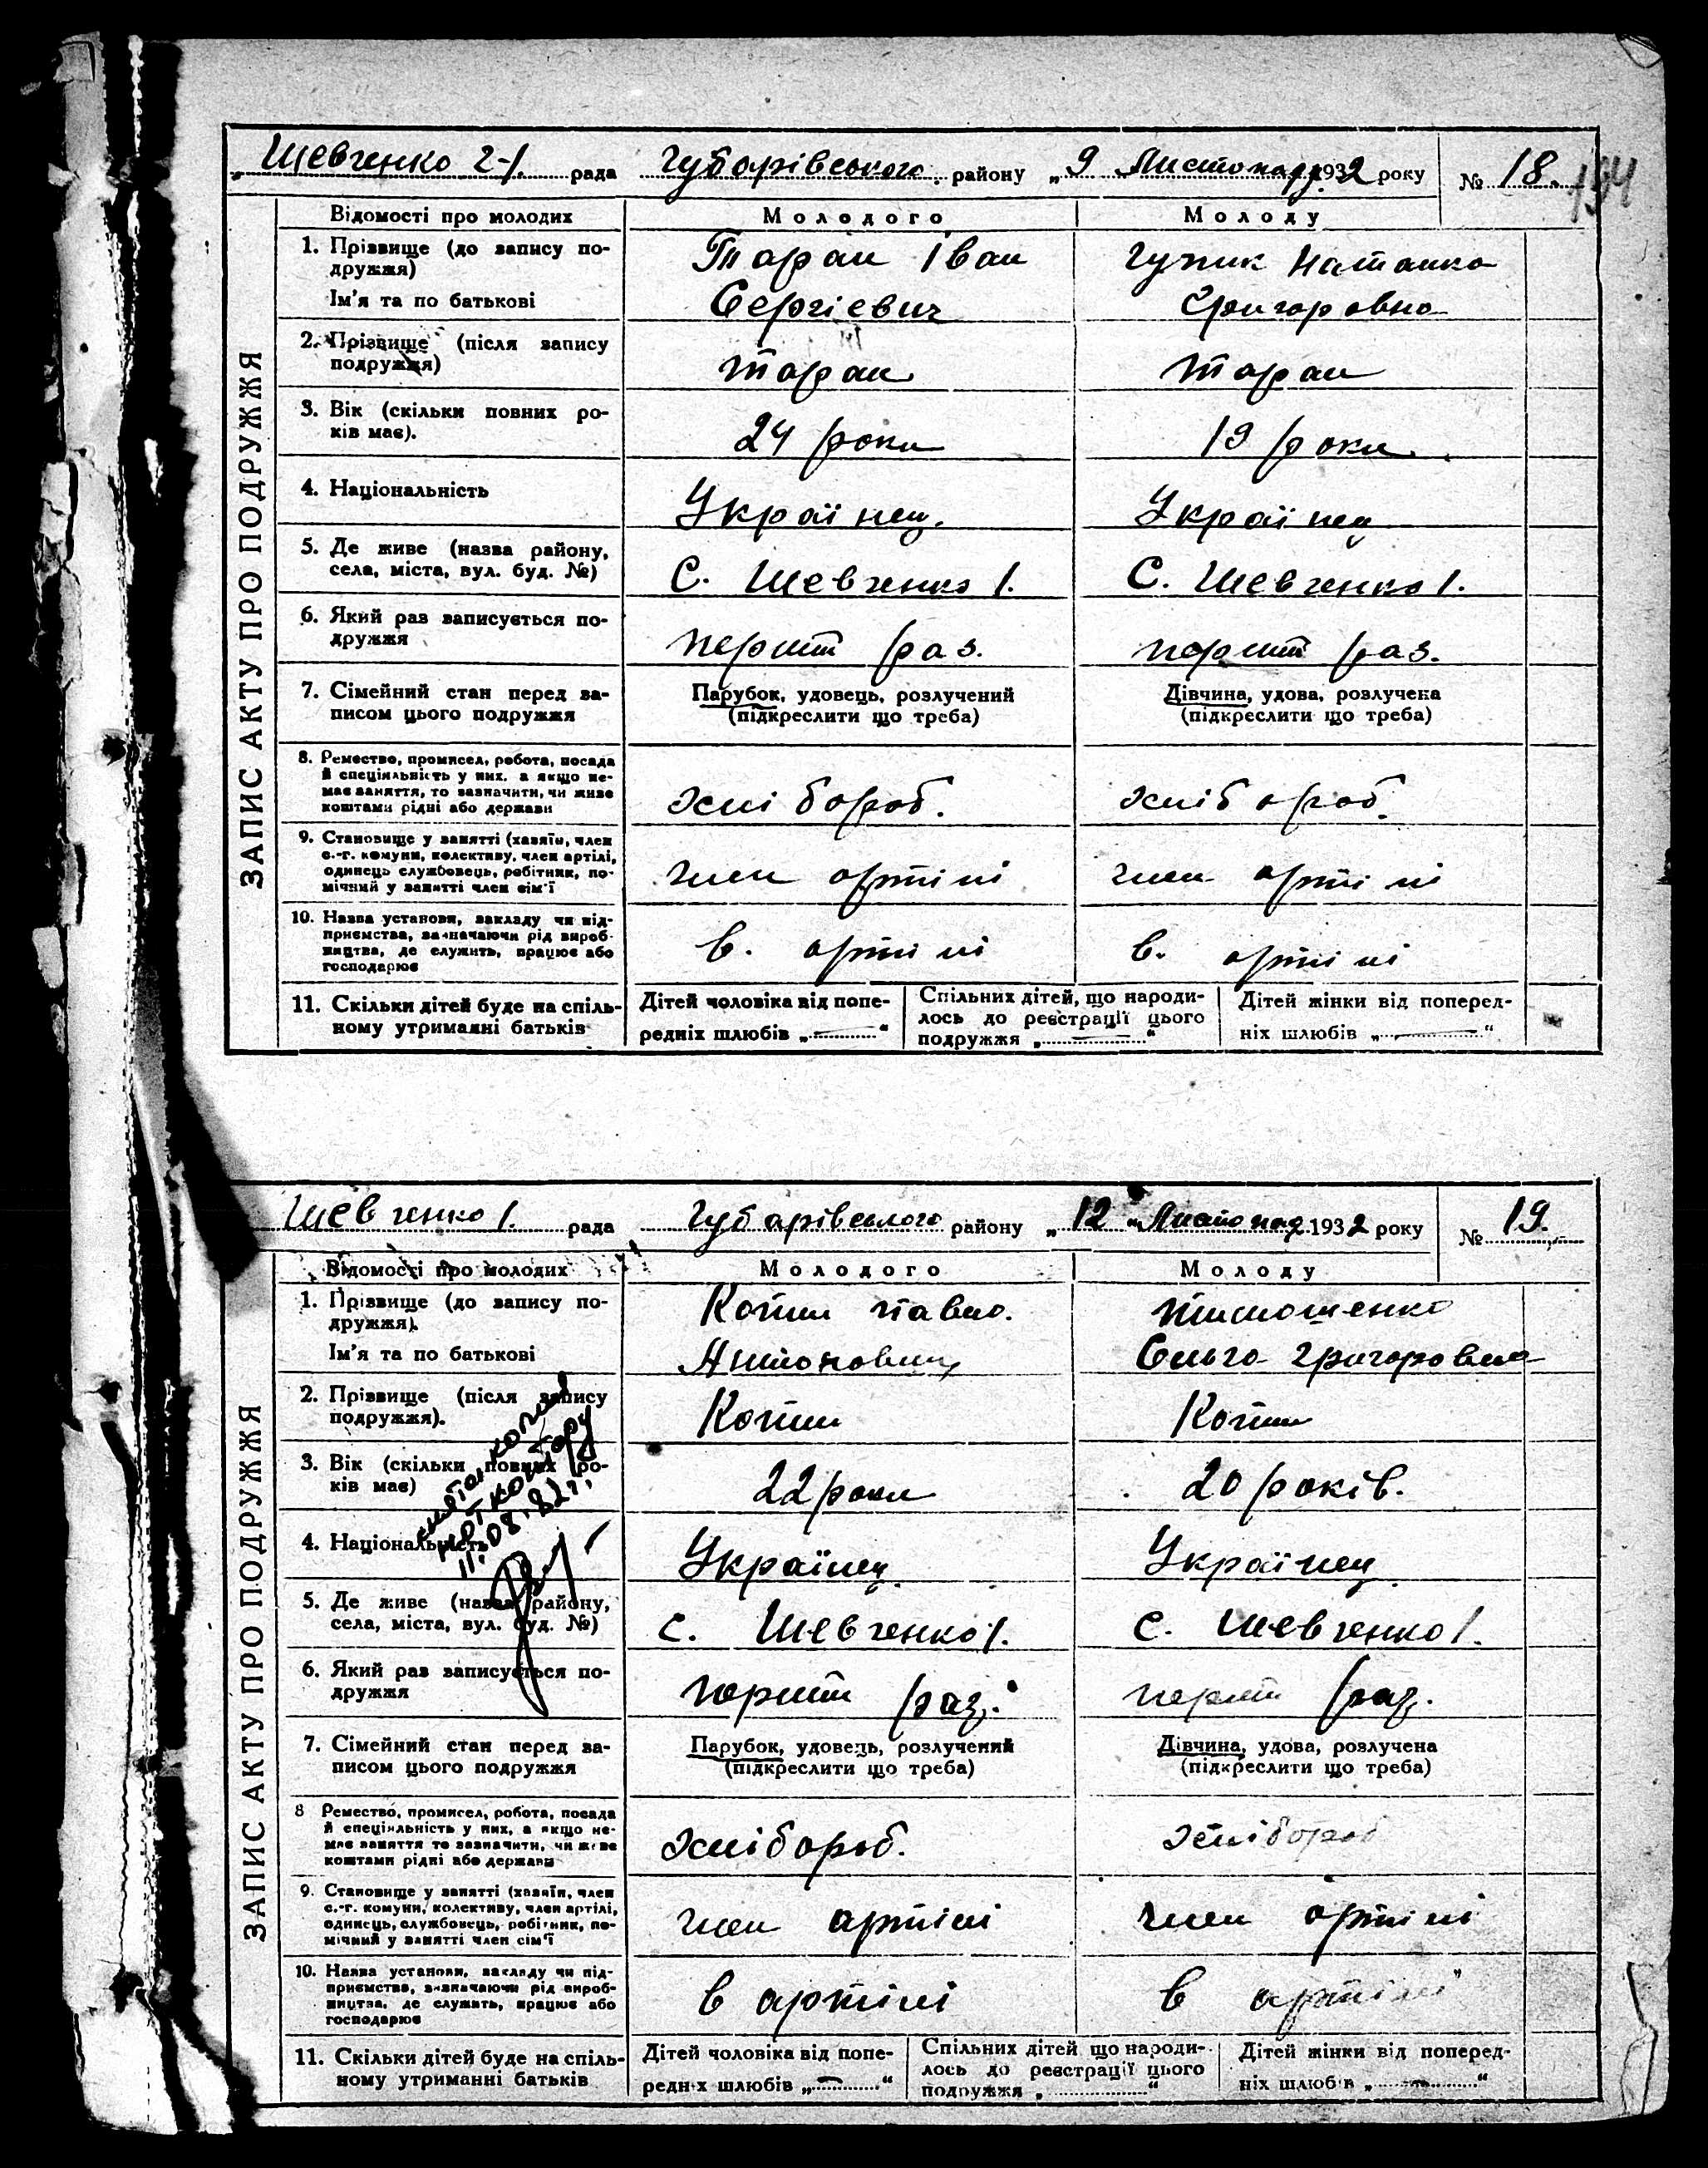 Шевченко 2-1. рада Губарівського району „9 Листопад. 1932 року № 18.
194
ЗАПИС АКТУ ПРО ПОДРУЖЖЯ
Відомості про молодих Молодого Молоду
1. Прізвище (до запису по- Таран Іван Гупик Наталка
дружжя)
Ім'я та по батькові Сергієвич Григоровна
2. Прізвище (після запису
подружжя) Таран Таран
3. Вік (скільки повних ро-
ків має). 24 роки 19 роки
4. Національність Українец. Українец
5. Де живе (назва району,
села, міста, вул. буд. №) С. Шевченко 1. С. Шевченко 1.
6. Який раз записується по-
дружжя перший раз. перший раз.
7. Сімейний стан перед за- Парубок, удовець, розлучений Дівчина, удова, розлучена
писом цього подружжя (підкреслити що треба) (підкреслити що треба)
8. Ремество, промисел, робота, посада
й спеціяльність у них, а якщо не-
має заняття, то зазначити, чи живе
коштами рідні або держави хлібороб. хлібороб.
9. Становище у занятті (хазяїн, член
с.-г. комуни, колективу, член артілі,
одинець службовець, робітник, по- член артілі член артілі
мічний у занятті член сім'ї
10. Назва установи, закладу чи під-
приємства, зазначаючи рід вироб-
ництва, де служить, працює або в. артілі в. артілі
господарює
11. Скільки дітей буде на спіль- Дітей чоловіка від попе- Спільних дітей, що народи- Дітей жінки від поперед-
ному утриманні батьків редніх шлюбів „—“ лось до реєстрації цього ніх шлюбів „—“
подружжя „—“
Шевченко 1. рада Губарівського району „12 „Листопад 1932 року № 19.
ЗАПИС АКТУ ПРО ПОДРУЖЖЯ
Відомості про молодих Молодого Молоду
1. Прізвище (до запису по- Павло. Тимошенко
дружжя).
Ім'я та по батькові Антонович Ольга Григоровна
2. Прізвище (після запису
подружжя).
3. Вік (скільки повних ро-
ків має) 22 роки 20 років.
11.08.82г.
4. Національність Українец. Українец.
5. Де живе (назва району,
села, міста, вул. буд. №) с. Шевченко 1. с. Шевченко 1.
6. Який раз записується по-
дружжя перший раз. перший раз.
7. Сімейний стан перед за- Парубок, удовець, розлучений Дівчина, удова, розлучена
писом цього подружжя (підкреслити що треба) (підкреслити що треба)
8 Ремество, промисел, робота, посада
й спеціяльність у них, а якщо не-
має заняття то зазначити, чи живе
коштами рідні або держави хлібороб. хлібороб
9. Становище у занятті (хазяїн, член
с.-г. комуни, колективу, член артілі,
одинець, службовець, робітник, по- член артілі член артілі
мічний у занятті член сім'ї
10. Назва установи, закладу чи під-
приємства, зазначаючи рід вироб-
ництва, де служить, працює або в артілі в артілі
господарює
11. Скільки дітей буде на спіль- Дітей чоловіка від попе- Спільних дітей, що народи- Дітей жінки від поперед-
ному утриманні батьків редніх шлюбів „—“ лось до реєстрації цього ніх шлюбів „—“
подружжя „ “